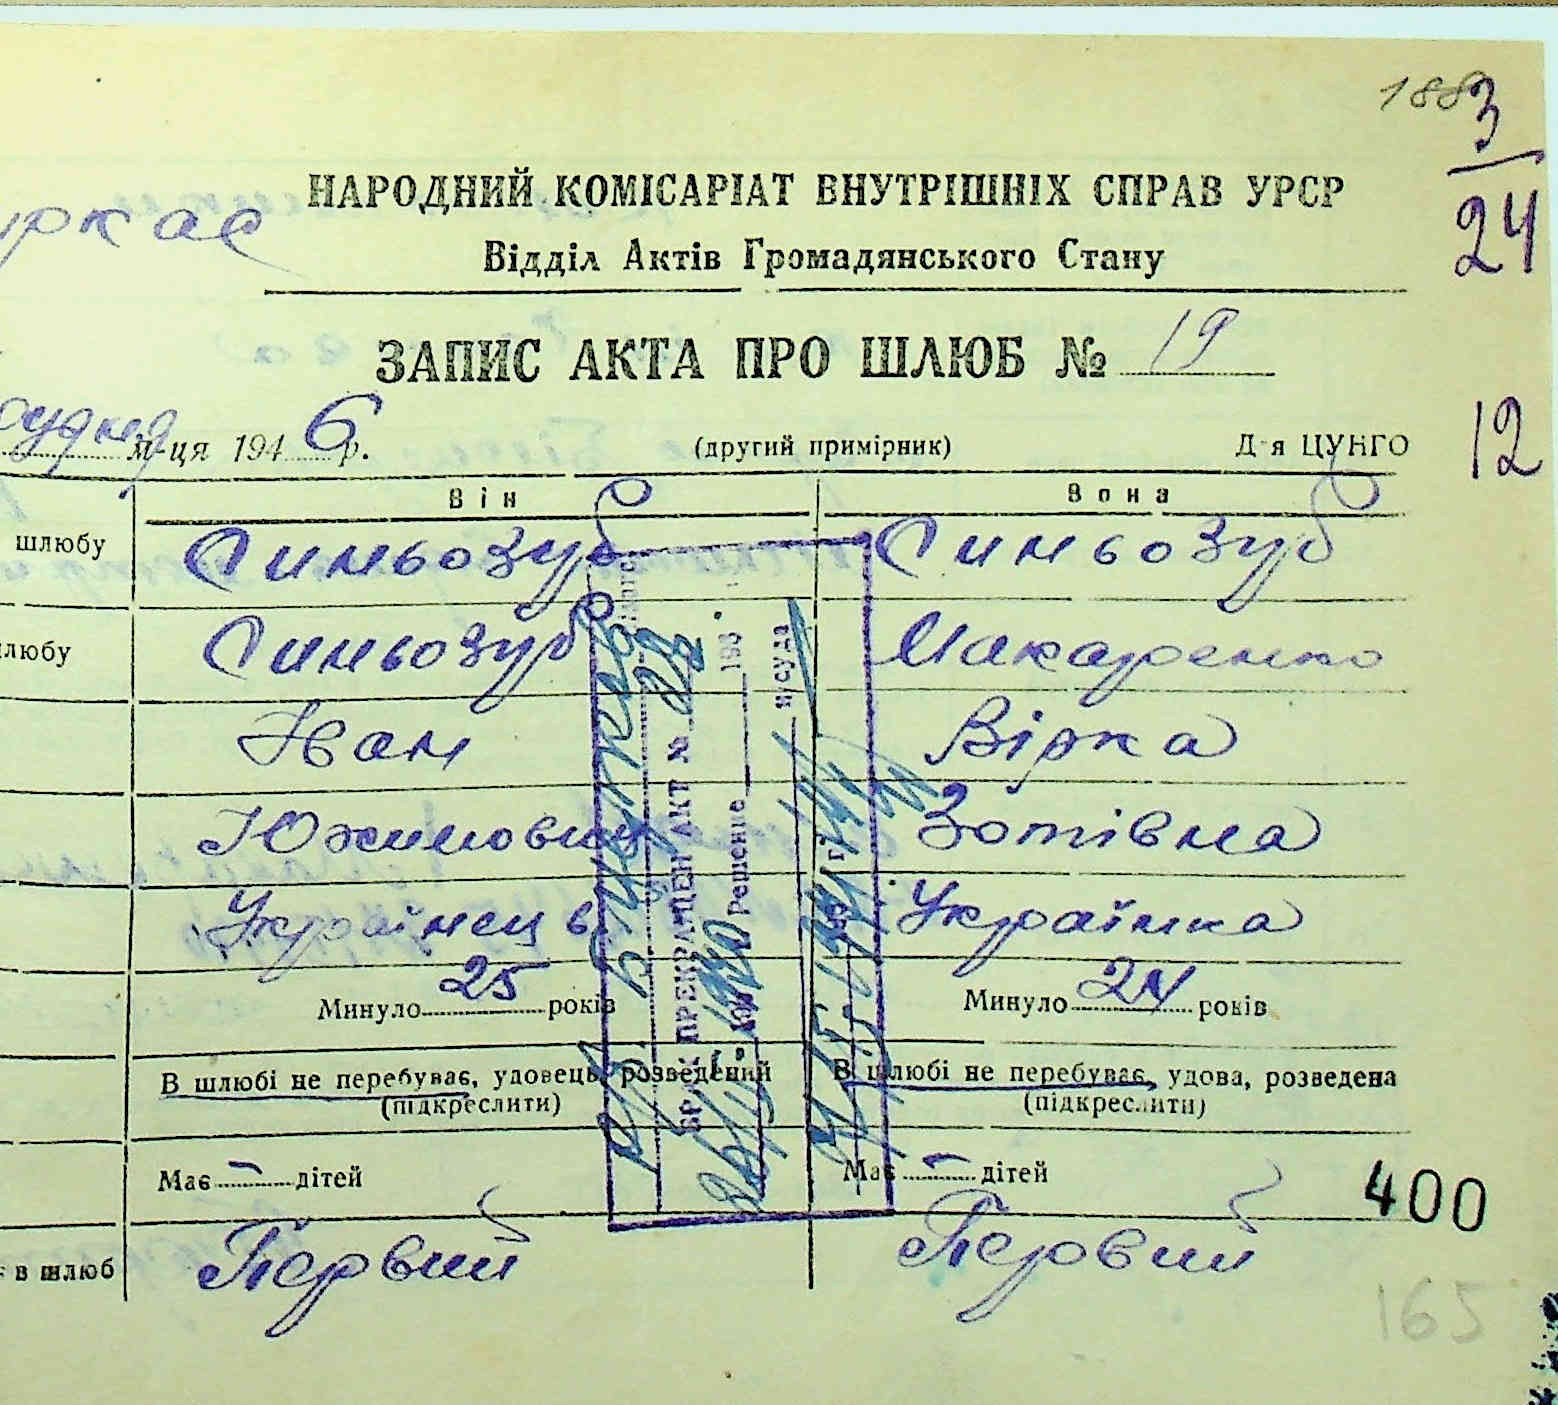 188
3
24
НАРОДНИЙ КОМІСАРІАТ ВНУТРІШНІХ СПРАВ УРСР
ркас
Відділ Актів Громадянського Стану
ЗАПИС АКТА ПРО ШЛЮБ № 19
грудня м-ця 1946 р. (другий примірник) Д-я ЦУНГО
12
Він Вона
шлюбу Синьозуб Синьозуб
шлюбу Синьозуб Макаренко
Іван Вірка
Юхимович Зотівна
Українець Українка
Минуло 25 років Минуло 24 років
В шлюбі не перебуває, удовець, розведений В шлюбі не перебуває, удова, розведена
(підкреслити) (підкреслити)
Має - дітей Має - дітей
400
в шлюб Первий Первий
165
БРАК ПРЕКРАЩЕН АКТ №
Решение
н/суда